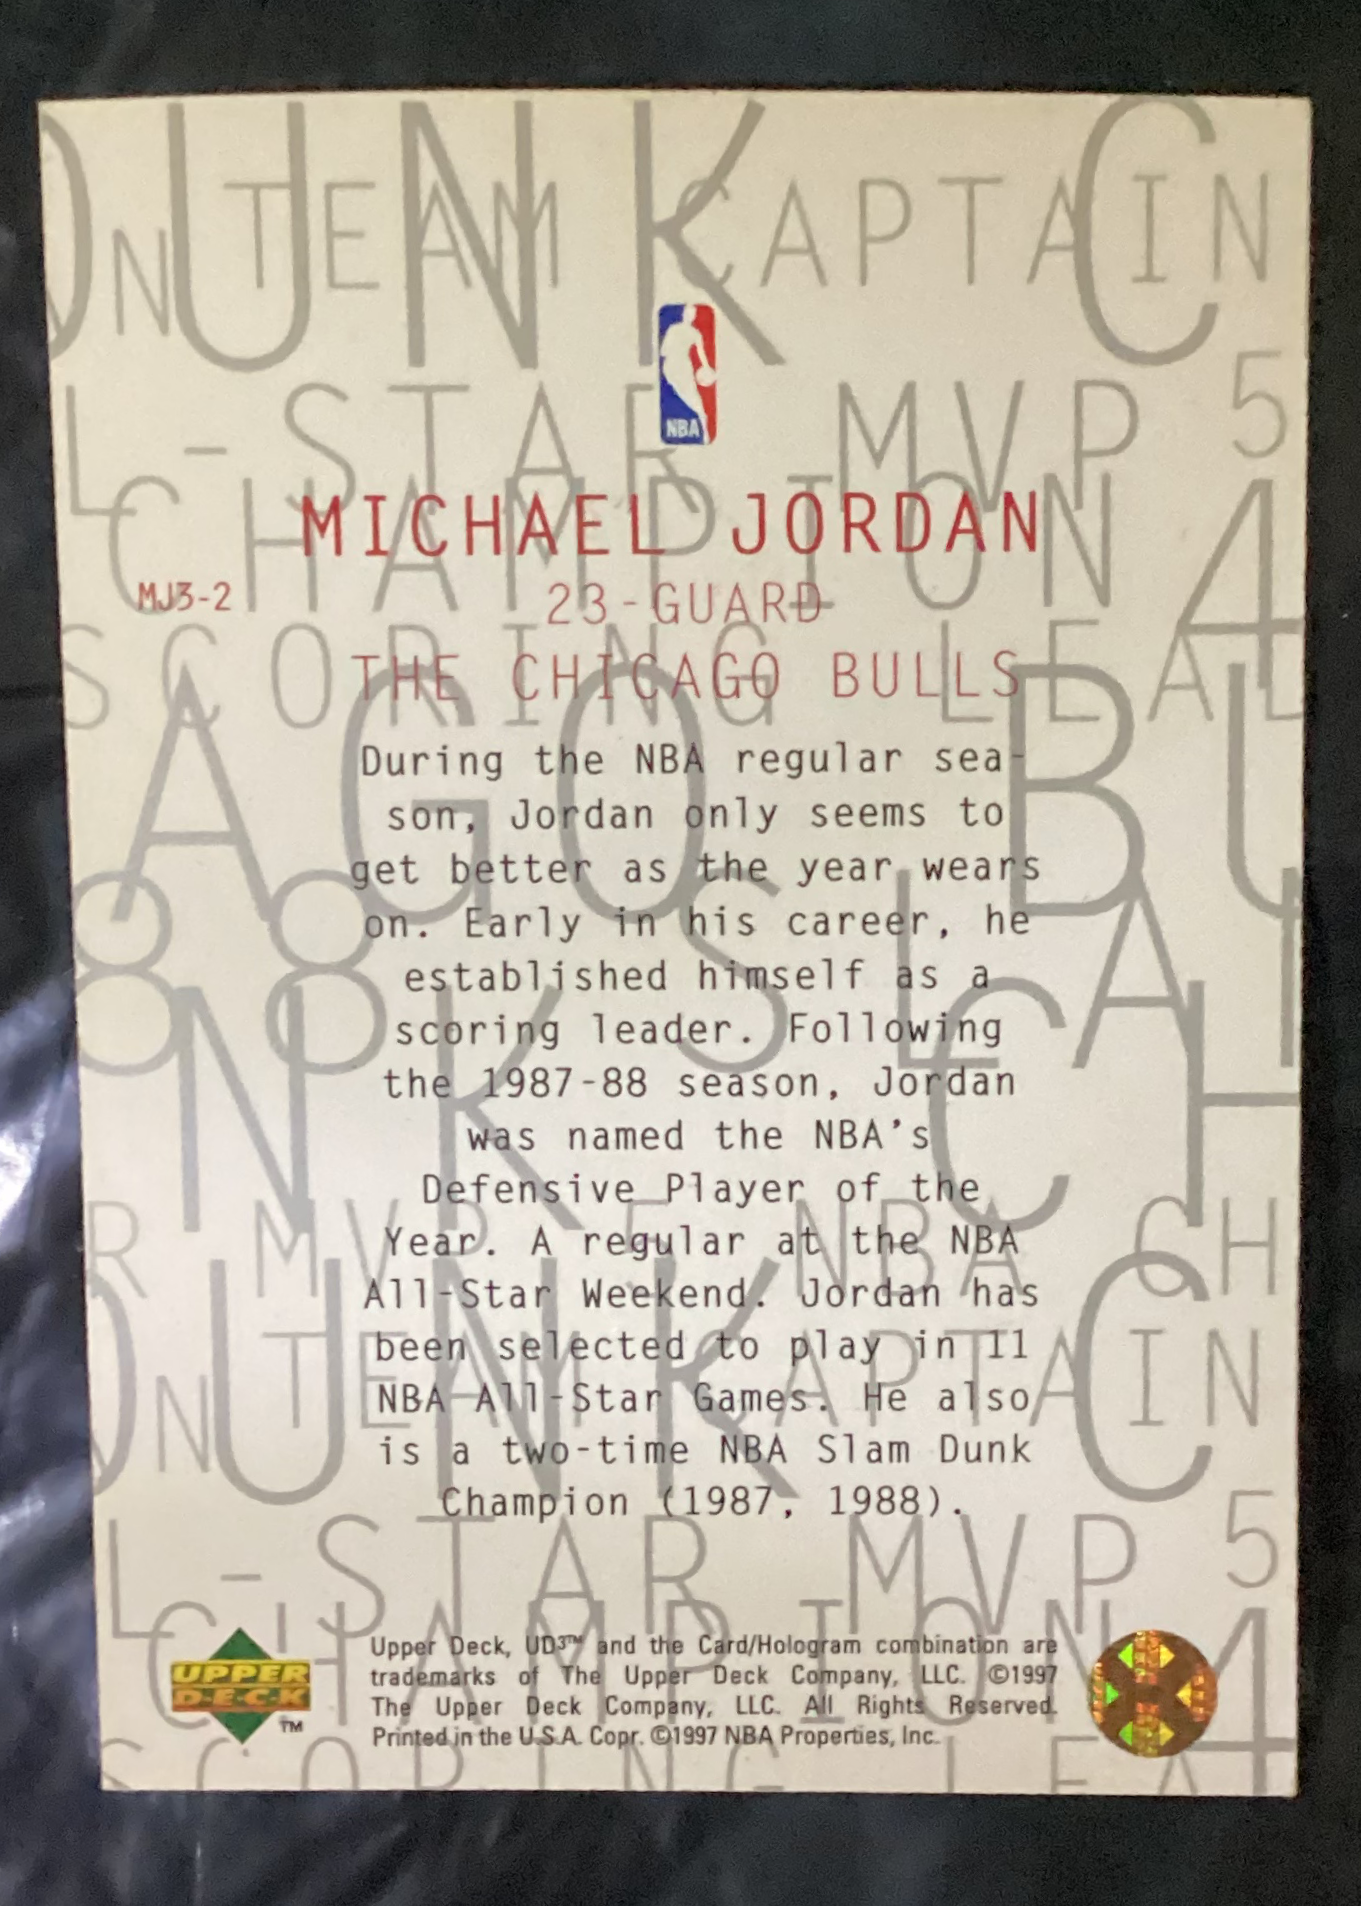 DUNK C
N TEAM CAPTAIN
NBA
L-STAR MVP 5
CHAMPION 4
MICHAEL JORDAN
MJ3-2
23-GUARD
SCORING LEAD
THE CHICAGO BULLS
AGO BU
During the NBA regular sea-
son, Jordan only seems to
get better as the year wears
on. Early in his career, he
88 S LA
established himself as a
scoring leader. Following
NK CH
the 1987-88 season, Jordan
was named the NBA's
Defensive Player of the
R MVP NBA CH
Year. A regular at the NBA
All-Star Weekend. Jordan has
DUNK C
N TEAM CAPTAIN
been selected to play in 11
NBA All-Star Games. He also
is a two-time NBA Slam Dunk
Champion (1987, 1988).
L-STAR MVP 5
CHAMPION 4
UPPER
DECK
TM
Upper Deck, UD3™ and the Card/Hologram combination are
trademarks of The Upper Deck Company, LLC. ©1997
The Upper Deck Company, LLC. All Rights Reserved.
Printed in the U.S.A. Copr. ©1997 NBA Properties, Inc.
SCORING LEA